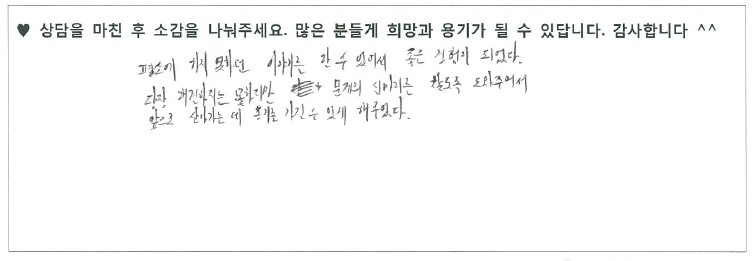 ♥ 상담을 마친 후 소감을 나눠주세요. 많은 분들게 희망과 용기가 될 수 있답니다. 감사합니다 ^^
평소에 하지 못하던 이야기를 할 수 있어서 좋은 경험이 되었다.
당장 해결하지는 못하지만 문제의 실마리를 찾도록 도와주어서
앞으로 살아가는 데 용기를 가질 수 있게 해주었다.